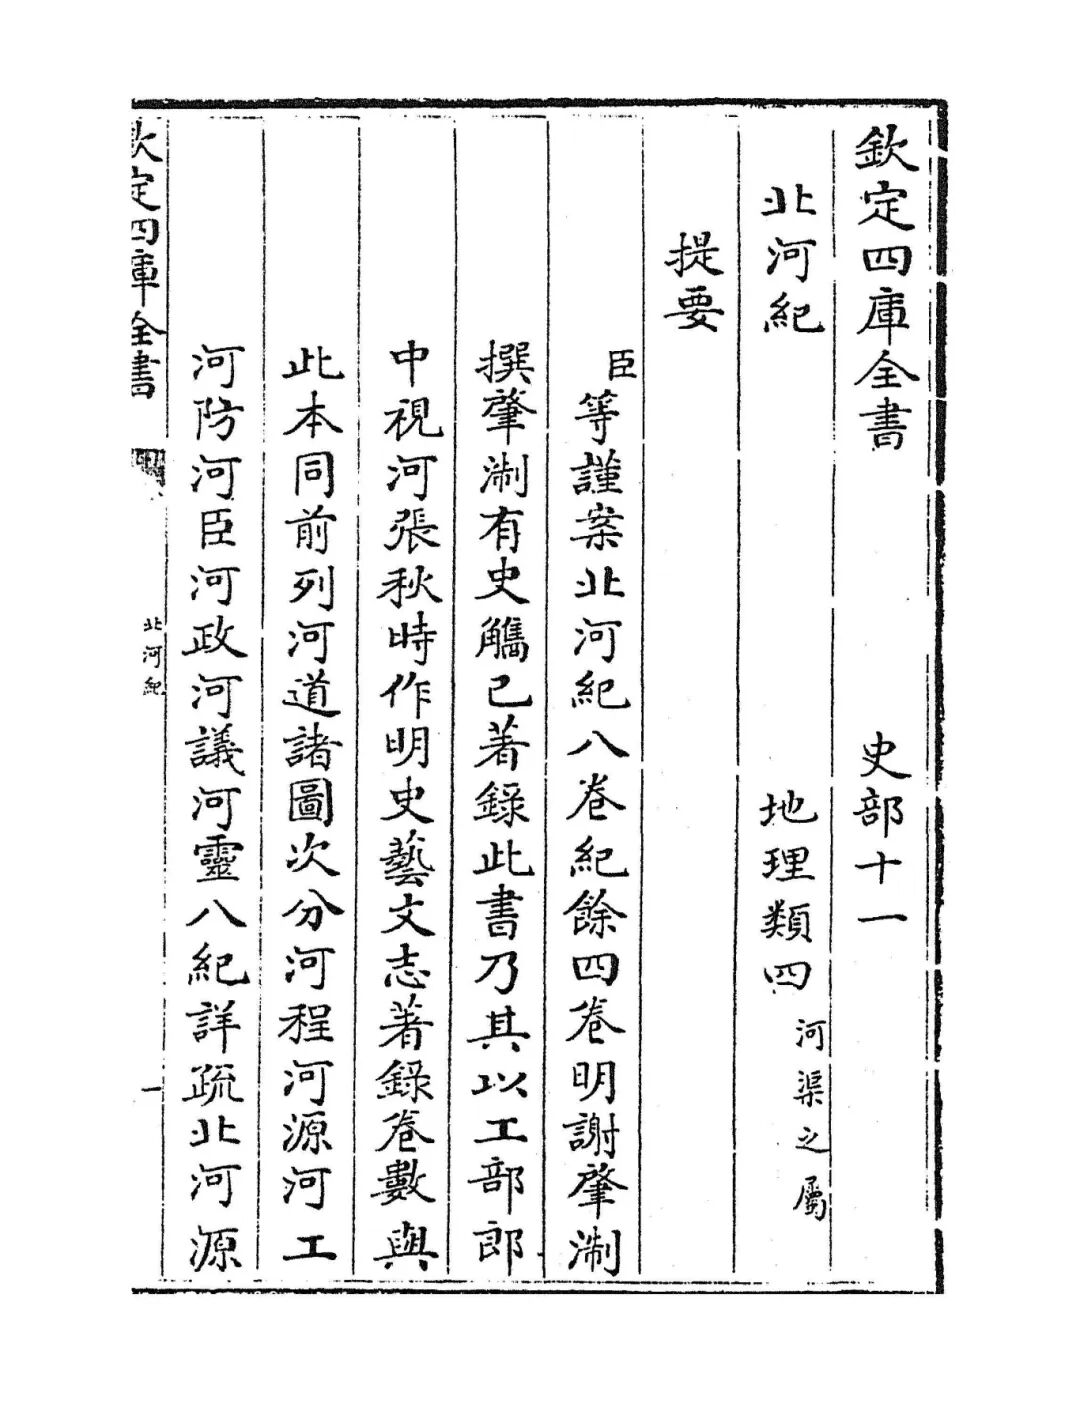 欽定四庫全書 史部十一
北河紀 地理類四 河渠之屬
提要
臣等謹案北河紀八卷紀餘四卷明謝肇淛
撰肇淛有史觿已著錄此書乃其以工部郎
中視河張秋時作明史藝文志著錄卷數與
此本同前列河道諸圖次分河程河源河工
河防河臣河政河議河靈八紀詳疏北河源
欽定四庫全書 北河紀 一